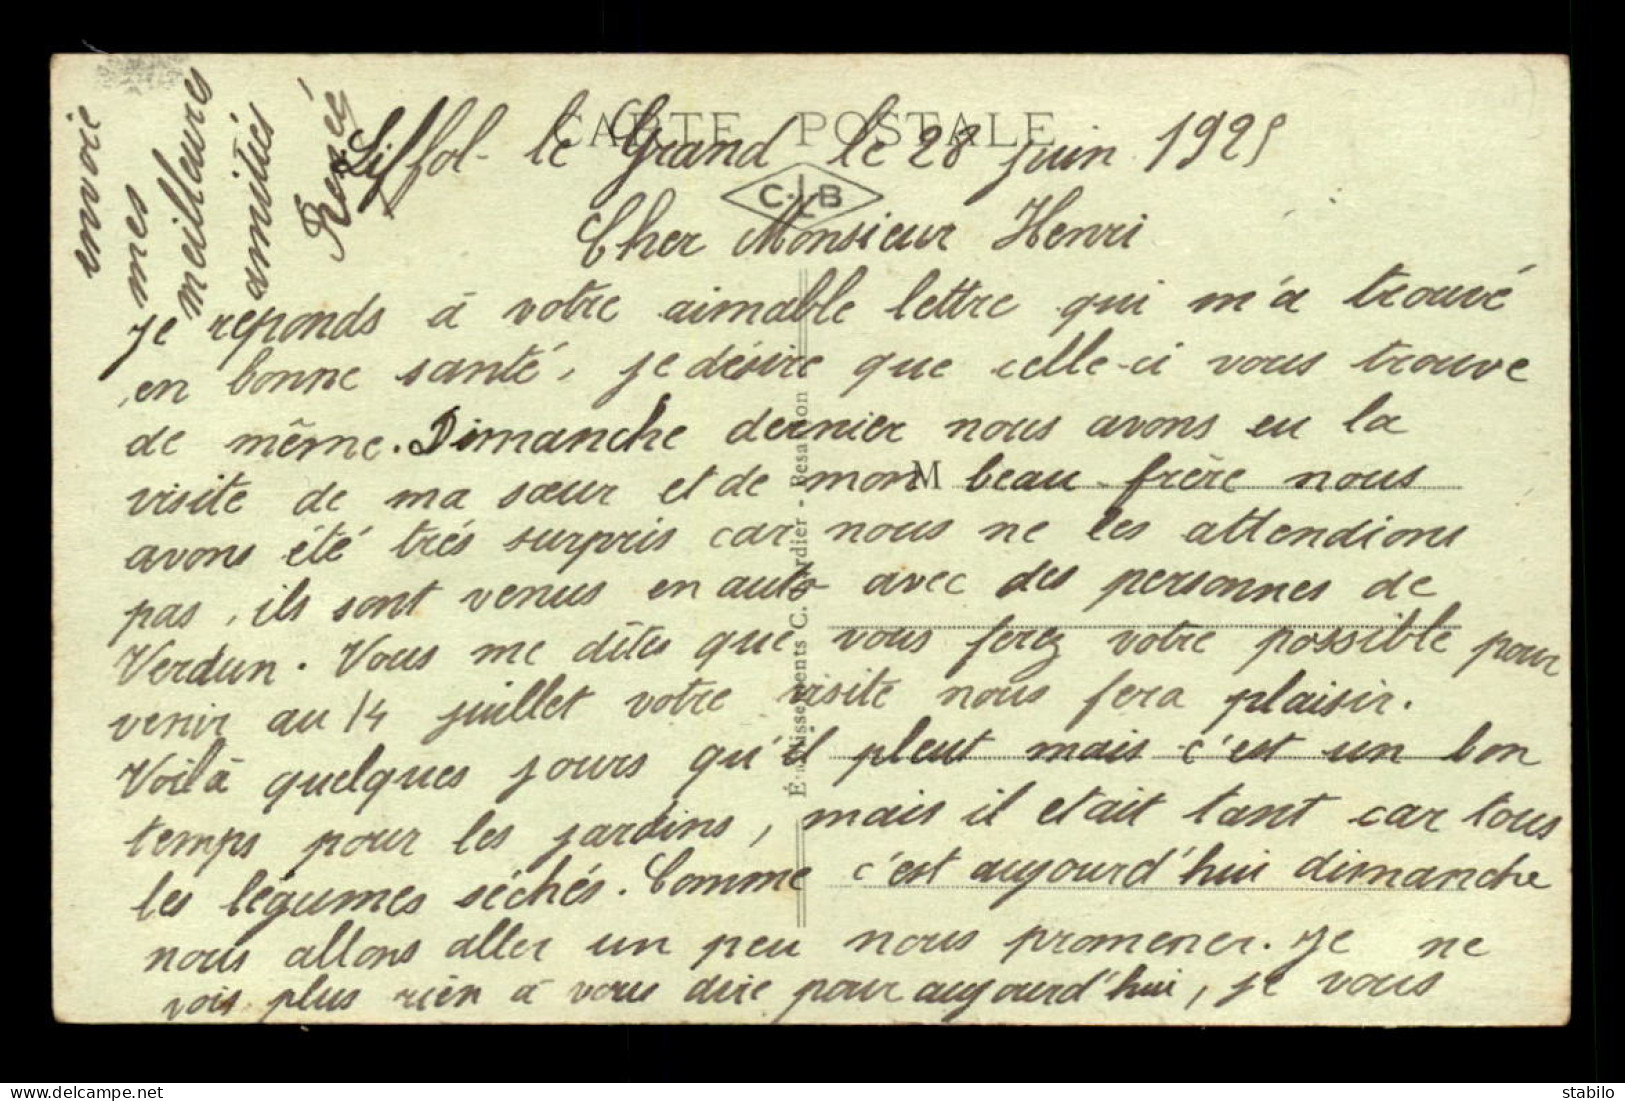 CARTE POSTALE
Liffol-le Grand le 28 juin 1925
C.L.B
Cher Monsieur Henri
Je reponds à votre aimable lettre qui m'a trouvé
en bonne santé, je désire que celle-ci vous trouve
de même. Dimanche dernier nous avons eu la
visite de ma sœur et de mon beau frère nous
M
avons été trés surpris car nous ne les attendions
pas, ils sont venus en auto avec des personnes de
Verdun. Vous me dîtes que vous ferez votre possible pour
venir au 14 juillet votre visite nous fera plaisir.
Voilà quelques jours qu'il pleut mais c'est un bon
temps pour les jardins, mais il etait tant car tous
les légumes séchés. Comme c'est aujourd'hui dimanche
nous allons aller un peu nous promener. Je ne
vois plus rien à vous dire pour aujourd'hui, je vous
envoie
mes
meilleures
amitiés
Renée
Établissements C. Lardier - Besançon
stabilo